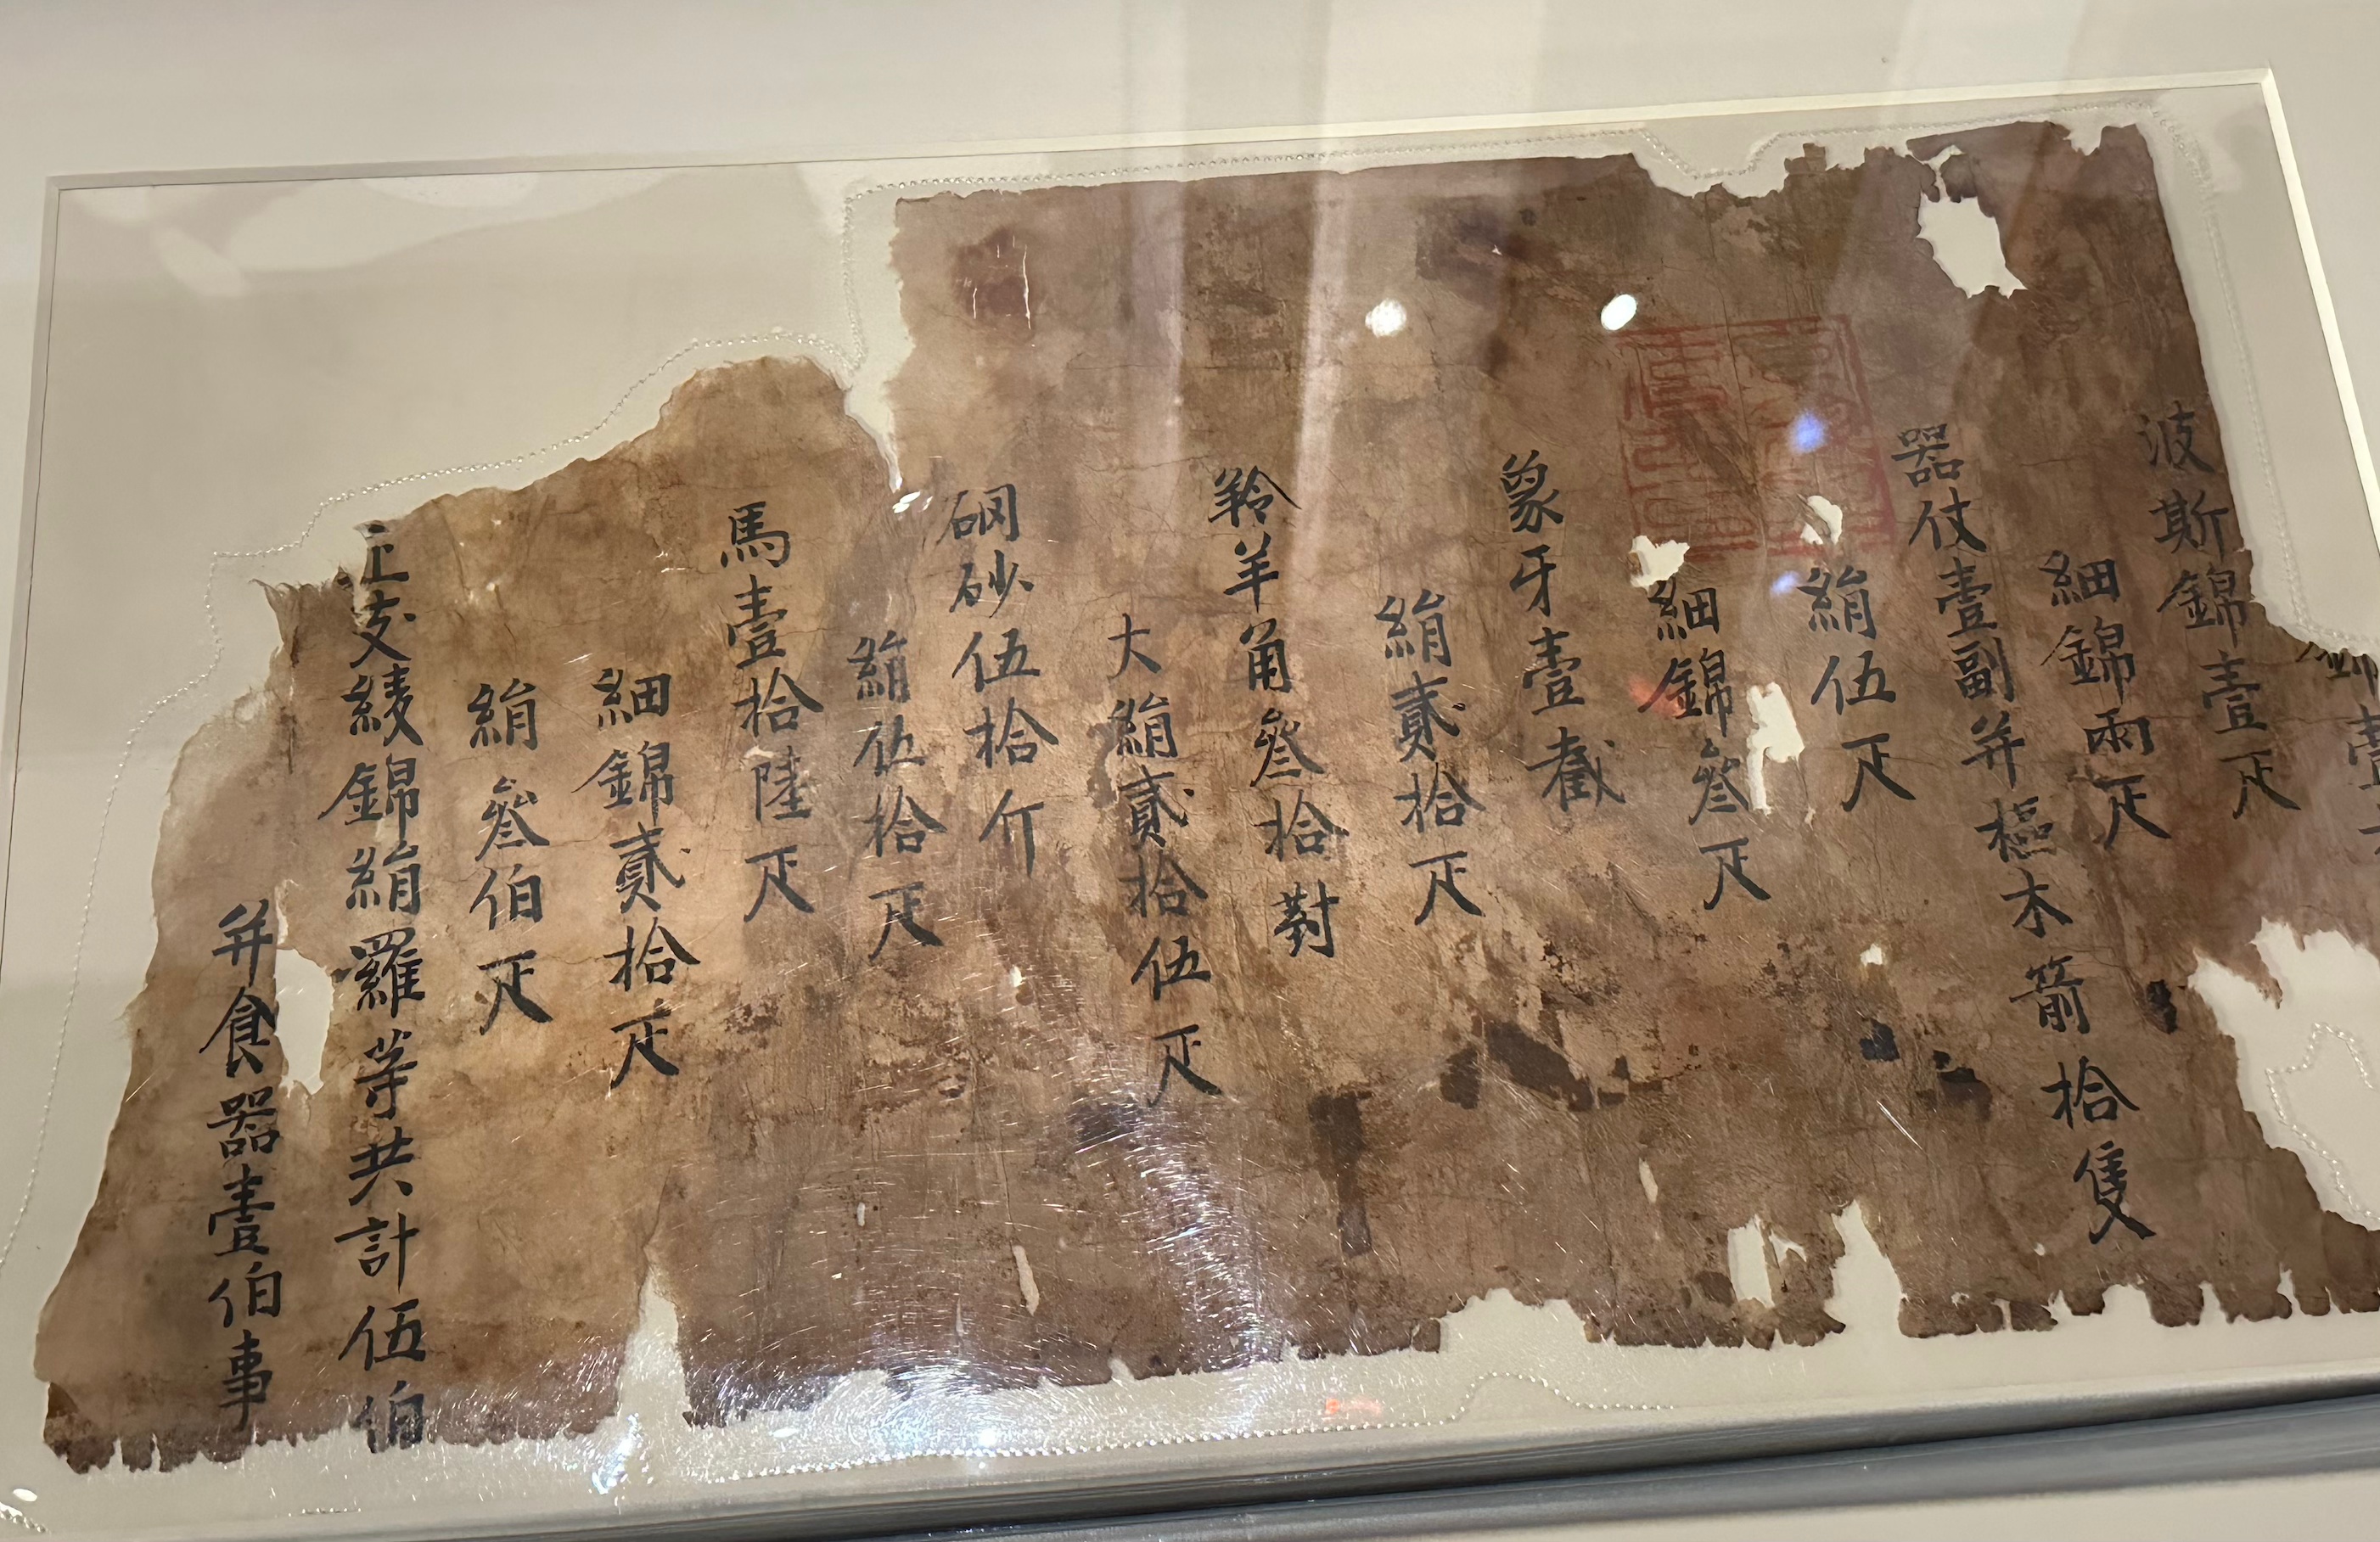 錦壹
波斯錦壹疋
細錦兩疋
器仗壹副并樞木箭拾隻
絹伍疋
細錦叄疋
象牙壹截
絹貳拾疋
羚羊角叄拾對
大絹貳拾伍疋
硇砂伍拾斤
絹伍拾疋
馬壹拾陸疋
細錦貳拾疋
絹叄伯疋
支綾錦絹羅等共計伍伯
并食器壹伯事